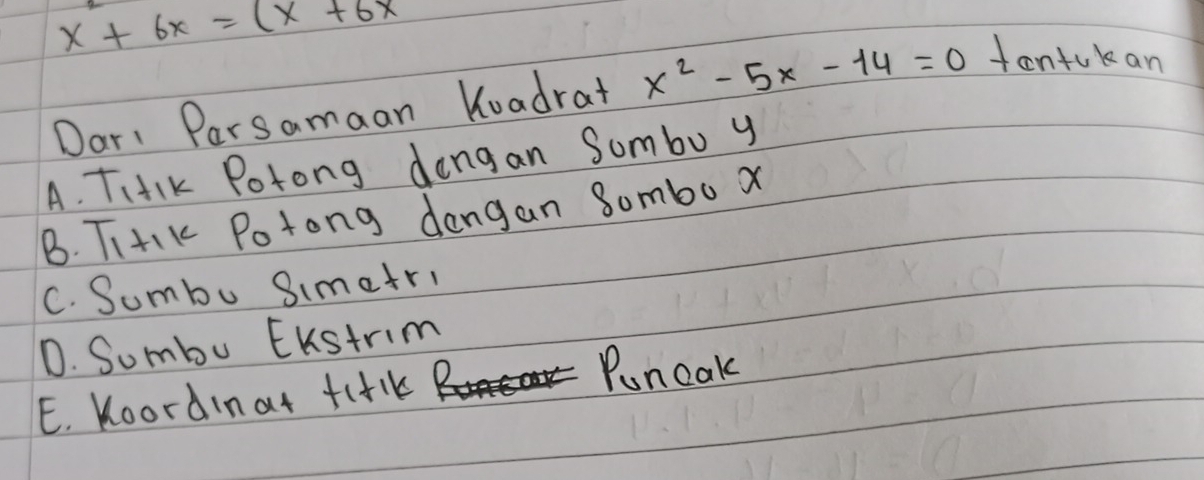 x² + 6x = (x + 6x
Dari Parsamaan Kuadrat x² - 5x - 14 = 0 tantukan
A. Titik Potong dengan Sumbu y
B. Titik Potong dangan Sumbu x
C. Sumbu Simatri
D. Sumbu Ekstrim
E. Koordinat titik Puncak